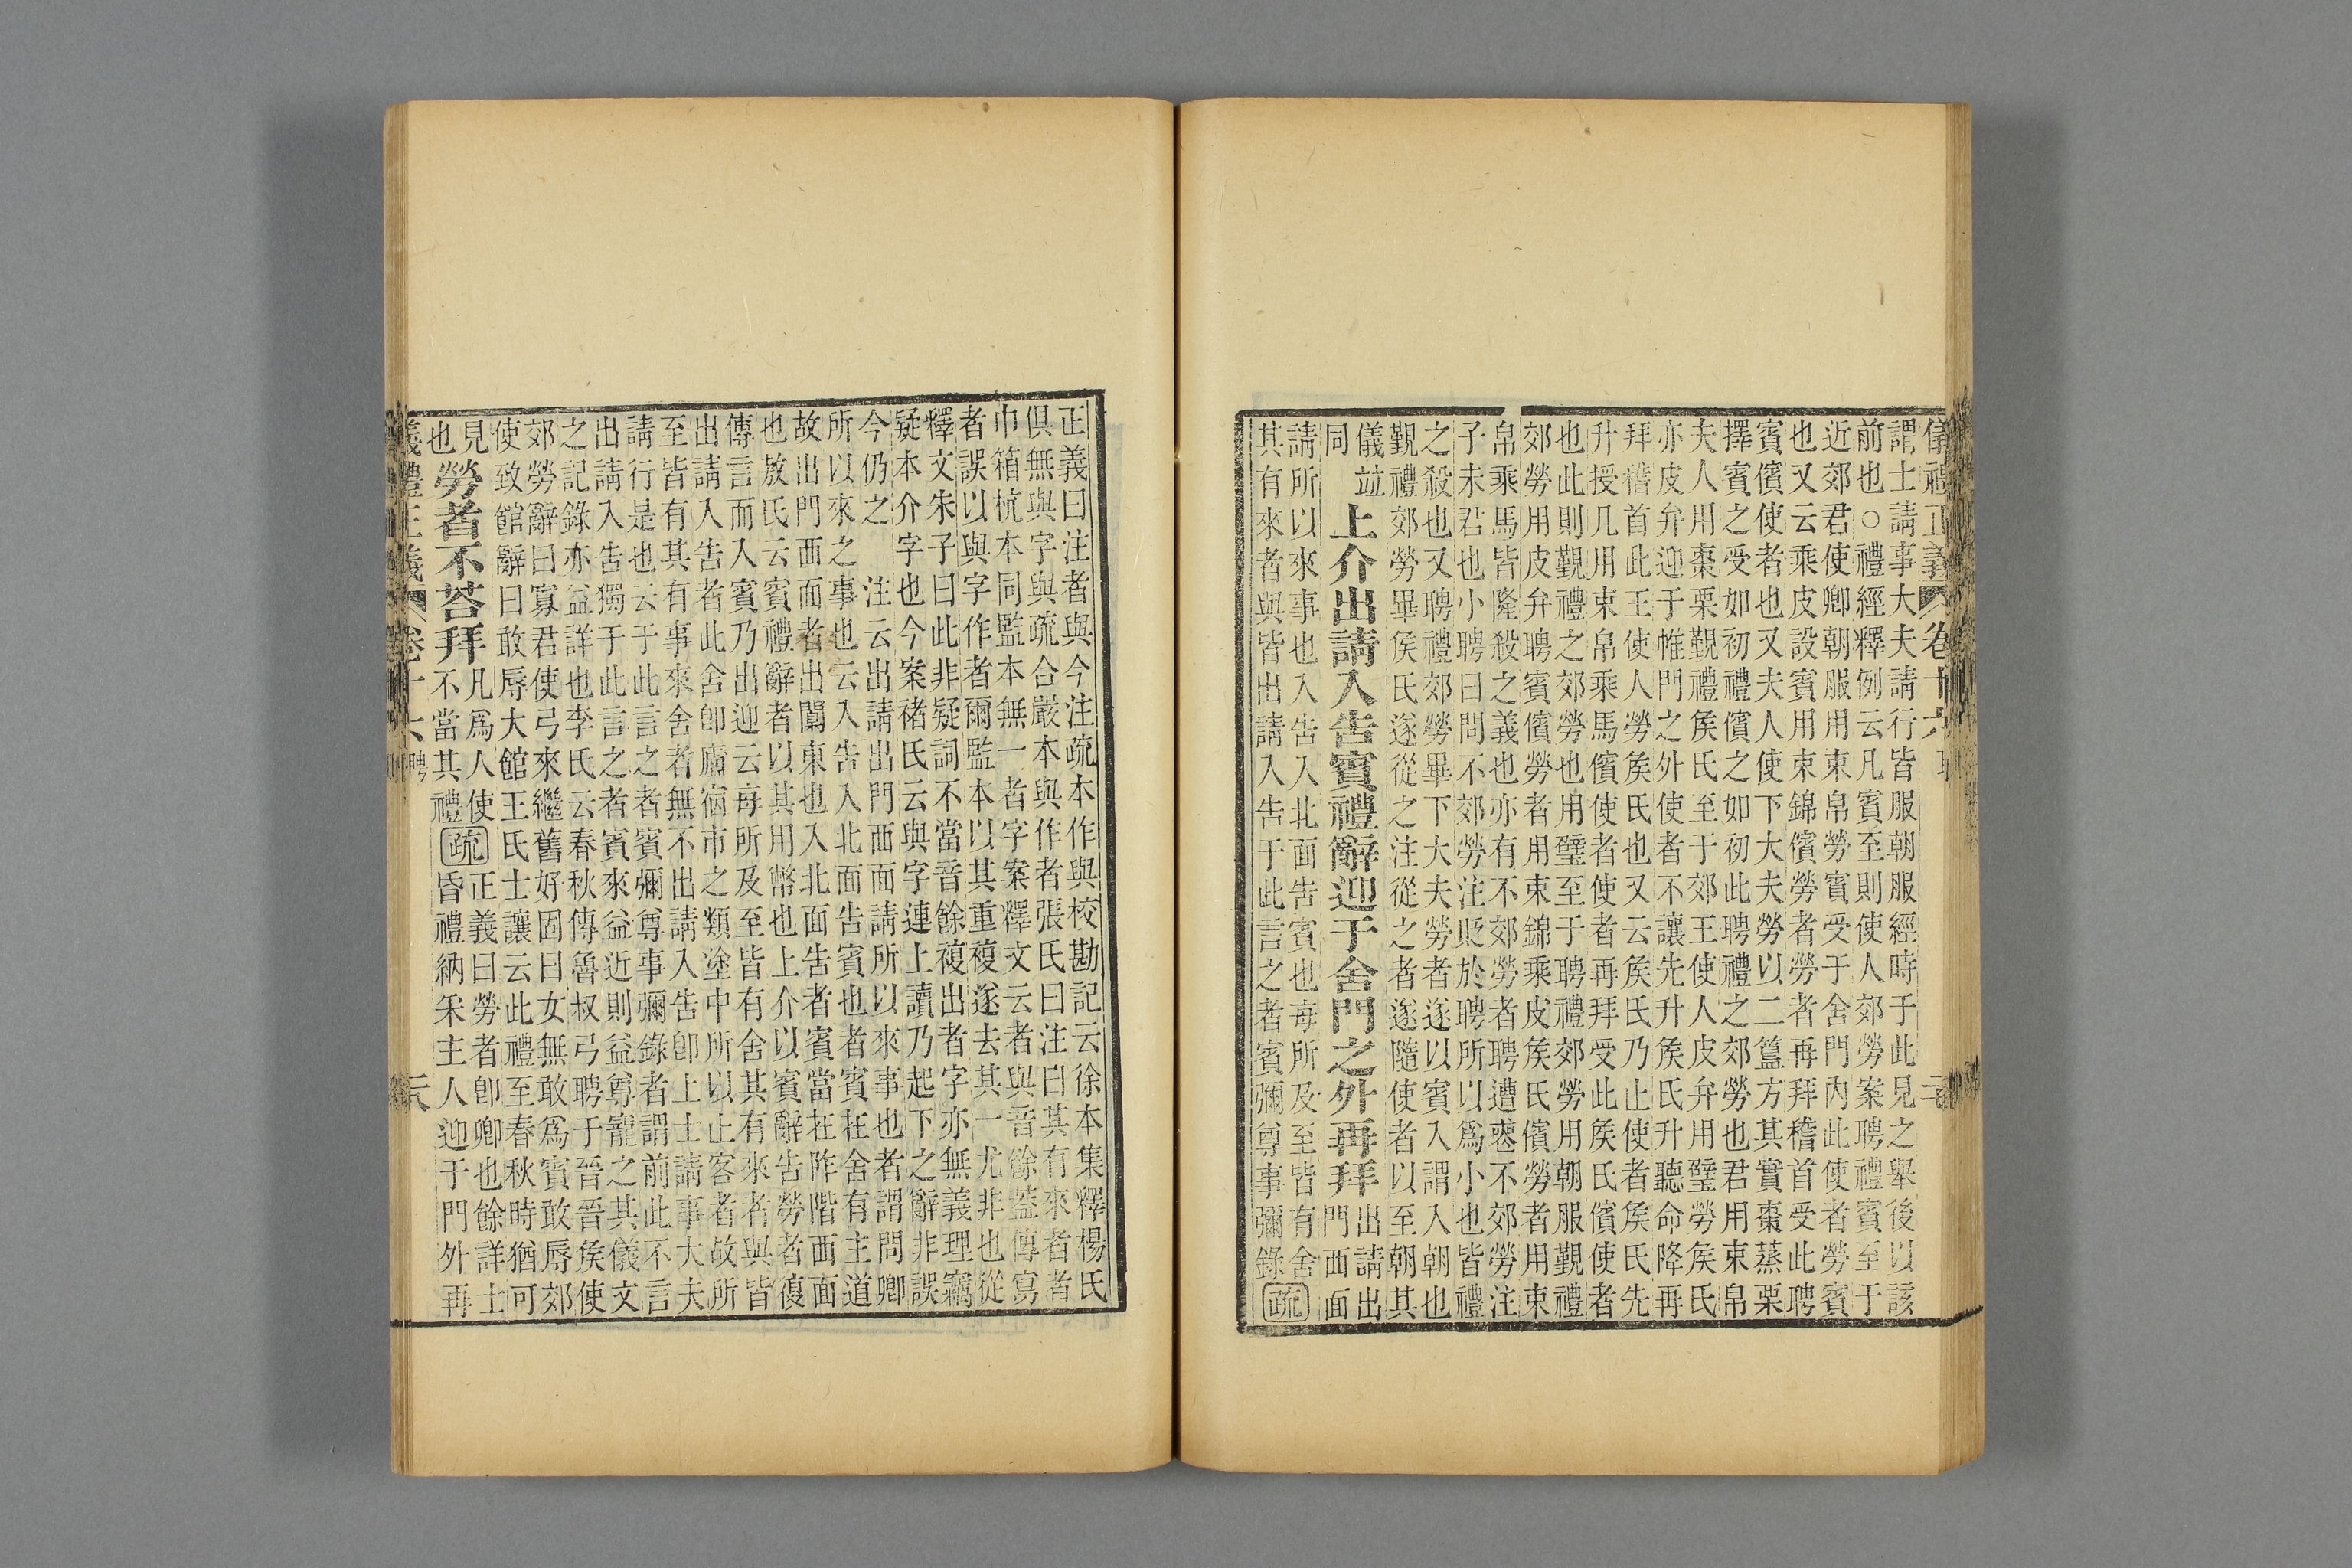 儀禮正義 卷十六 聘
謂士請事大夫請行皆服朝服經時于此見之舉後以該
前也○禮經釋例云凡賓至則使人郊勞案聘禮賓至于
近郊君使卿朝服用束帛勞賓受于舍門內此使者勞賓
也又云乘皮設賓用束錦儐勞者勞者再拜稽首受此聘
賓儐使者也又夫人使下大夫勞以二簋方其實棗蒸栗
擇賓之受如初禮儐之如初此聘禮之郊勞也君用束帛
夫人用棗栗覲禮矦氏至于郊王使人皮弁用璧勞矦氏
亦皮弁迎于帷門之外使者不讓先升矦氏升聽命降再
拜稽首此王使人勞矦氏也又云矦氏乃止使者矦氏先
升授几用束帛乘馬儐使者使者再拜受此矦氏儐使者
也此則覲禮之郊勞也用璧至于聘禮郊勞用朝服覲禮
郊勞用皮弁聘賓儐勞者用束錦乘皮矦氏儐勞者用束
帛乘馬皆隆殺之義也亦有不郊勞者聘遭喪不郊勞注
子未君也小聘曰問不郊勞注貶於聘所以爲小也皆禮
之殺也又聘禮郊勞畢下大夫勞者遂以賓入謂入朝也
覲禮郊勞畢矦氏遂從之注從之者遂隨使者以至朝其
儀竝
同
上介出請入告賓禮辭迎于舍門之外再拜
出請出
門西面
請所以來事也入告入北面告賓也每所及至皆有舍
其有來者與皆出請入告于此言之者賓彌尊事彌錄疏
正義曰注者與今注疏本作與校勘記云徐本集釋楊氏
俱無與字與疏合嚴本與作者張氏曰注曰其有來者者
巾箱杭本同監本無一者字案釋文云者與音餘蓋傳寫
者誤以與字作者爾監本以其重複遂去其一尤非也從
釋文朱子曰此非疑詞不當音餘複出者字亦無義理竊
疑本介字也今案褚氏云與字連上讀乃起下之辭非誤
今仍之 注云出請出門西面請所以來事也者謂問卿
所以來之事也云入告入北面告賓也者賓在舍有主道
故出門西面者出闑東也入北面告者賓當在阼階西面
也敖氏云賓禮辭者以其用幣也上介以賓辭告勞者復
傳言而入賓乃出迎云每所及至皆有舍其有來者與皆
出請入告者此舍卽廬宿市之類塗中所以止客者故所
至皆有其有事來舍者無不出請入告卽上士請事大夫
請行是也云于此言之者賓彌尊事彌錄者謂前此不言
出請入告獨于此言之者賓來益近則益尊寵之其儀文
之記錄亦益詳也李氏云春秋傳魯叔弓聘于晉晉矦使
郊勞辭曰寡君使弓來繼舊好固曰女無敢爲賓敢辱郊
使致館辭曰敢辱大館王氏士讓云此禮至春秋時猶可
見
也
勞者不荅拜
凡爲人使
不當其禮
疏
正義曰勞者卽卿也餘詳士
昏禮納采主人迎于門外再
義禮正義 卷十六 聘